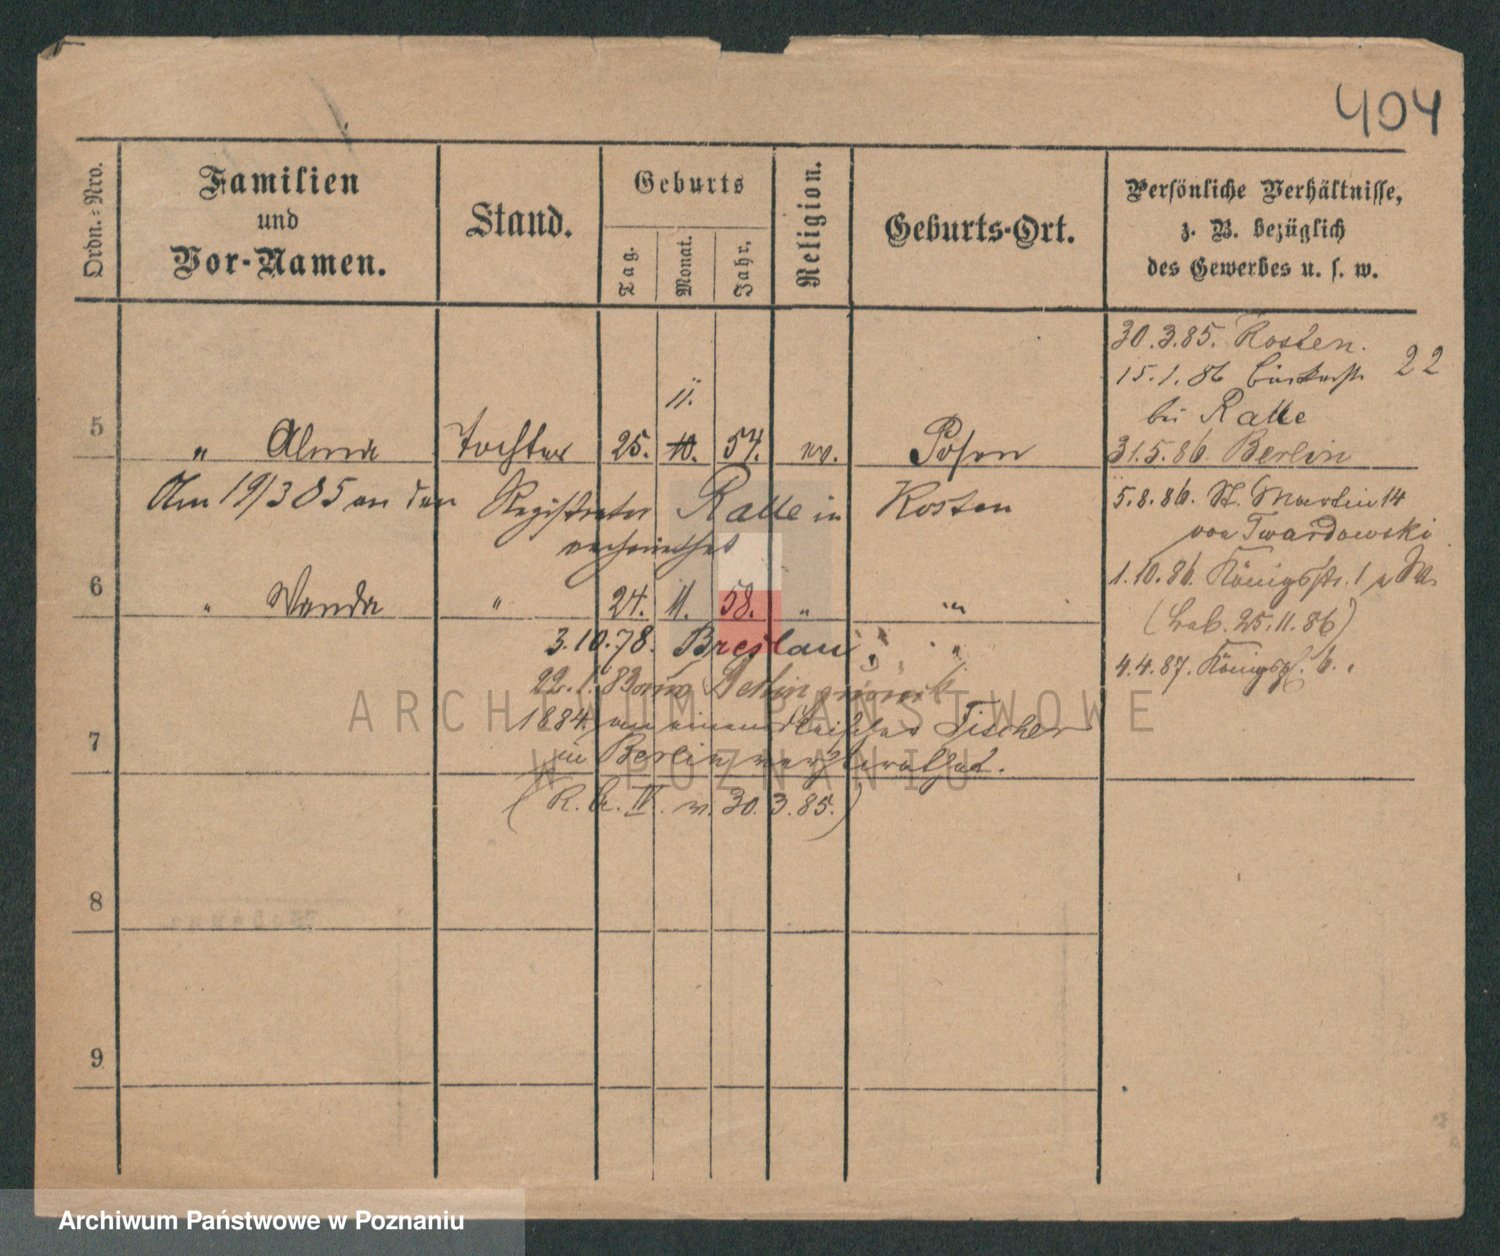 404
Ordn.=Nro.
Familien
und
Vor-Namen.
Stand.
Geburts
Tag.
Monat.
Jahr.
Religion.
Geburts-Ort.
Persönliche Verhältnisse,
z. B. bezüglich
des Gewerbes u. s. w.
30.3.85. Kosten.
15.1.86
22
bei Ratte
11.
5 " Alma Tochter 25. 10. 57. ev. Posen
31.5.86. Berlin
Am 19/3 85 an den Registrator Ratte in Kosten
verheirathet
5.8.86. St. Martin 14
von Twardowski
6 " Wanda " 24. 11. 58. " "
1.10.86. Königsstr. 1
(Lab. 25.11.86)
3.10.78. Breslau
4.4.87. Königspl. 6.
22.1.83
7
1884 an einen Fleischer Tischer
in Berlin verheirathet.
(R. A. IV. v. 30.3.85.)
8
9
ARCHIWUM PAŃSTWOWE
W POZNANIU
Archiwum Państwowe w Poznaniu